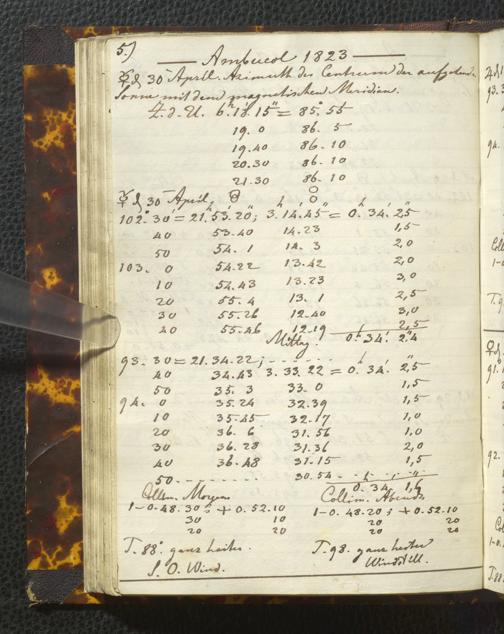 5.)
Ambucol 1823
☿ d. 30 April. Azimuth des Centrum der aufgehend.
Sonne mit dem magnetischen Meridian.
Z. d. U. 6.h 18.' 15" = 85.° 55'
19. 0 86. 5
19.40 86. 10
20.30 86. 10
21.30 86. 10
☿ d 30 April,
102.° 30' = 21.53.20; 3.14.45 = 0. 34. 2,5
40 53.40 14.23 1,5
50 54. 1 14. 3 2,0
103. 0 54.22 13.42 2,0
10 54.43 13.23 3,0
20 55. 4 13. 1 2,5
30 55.26 12.40 3,0
40 55.46 12.19 2,5
Mitty. 0. 34. 2,4
93. 30 = 21.34.22; - - - - - -
40 34.43 3.33.22 = 0. 34. 2,5
50 35. 3 33. 0 1,5
94. 0 35.24 32.39 1,5
10 35.45 32.17 1,0
20 36. 6 31.56 1,0
30 36.28 31.36 2,0
40 36.48 31.15 1,5
50 - - - - - - 30.54 - - - - - -
0. 34. 1,6
Collim. Morgens Collim. Abends
1-0.48.30; + 0.52.10 1-0.48.20; + 0.52.10
30 10 20 20
20 20 20 20
T. 88° ganz heiter. T. 98. ganz heiter
S. O. Wind. Windstill.